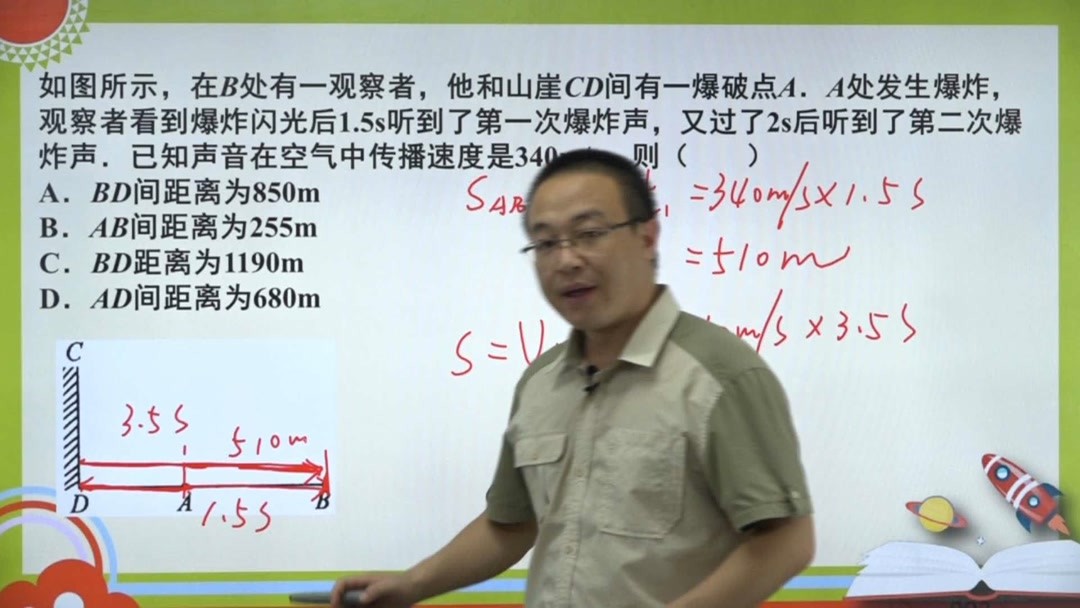 如图所示，在B处有一观察者，他和山崖CD间有一爆破点A．A处发生爆炸，
观察者看到爆炸闪光后1.5s听到了第一次爆炸声，又过了2s后听到了第二次爆
炸声．已知声音在空气中传播速度是340 则（　　）
A．BD间距离为850m
B．AB间距离为255m
C．BD距离为1190m
D．AD间距离为680m
SAB =340m/s×1.5s
=510m
S=V m/s×3.5s
C
3.5s
510m
D A B
1.5s